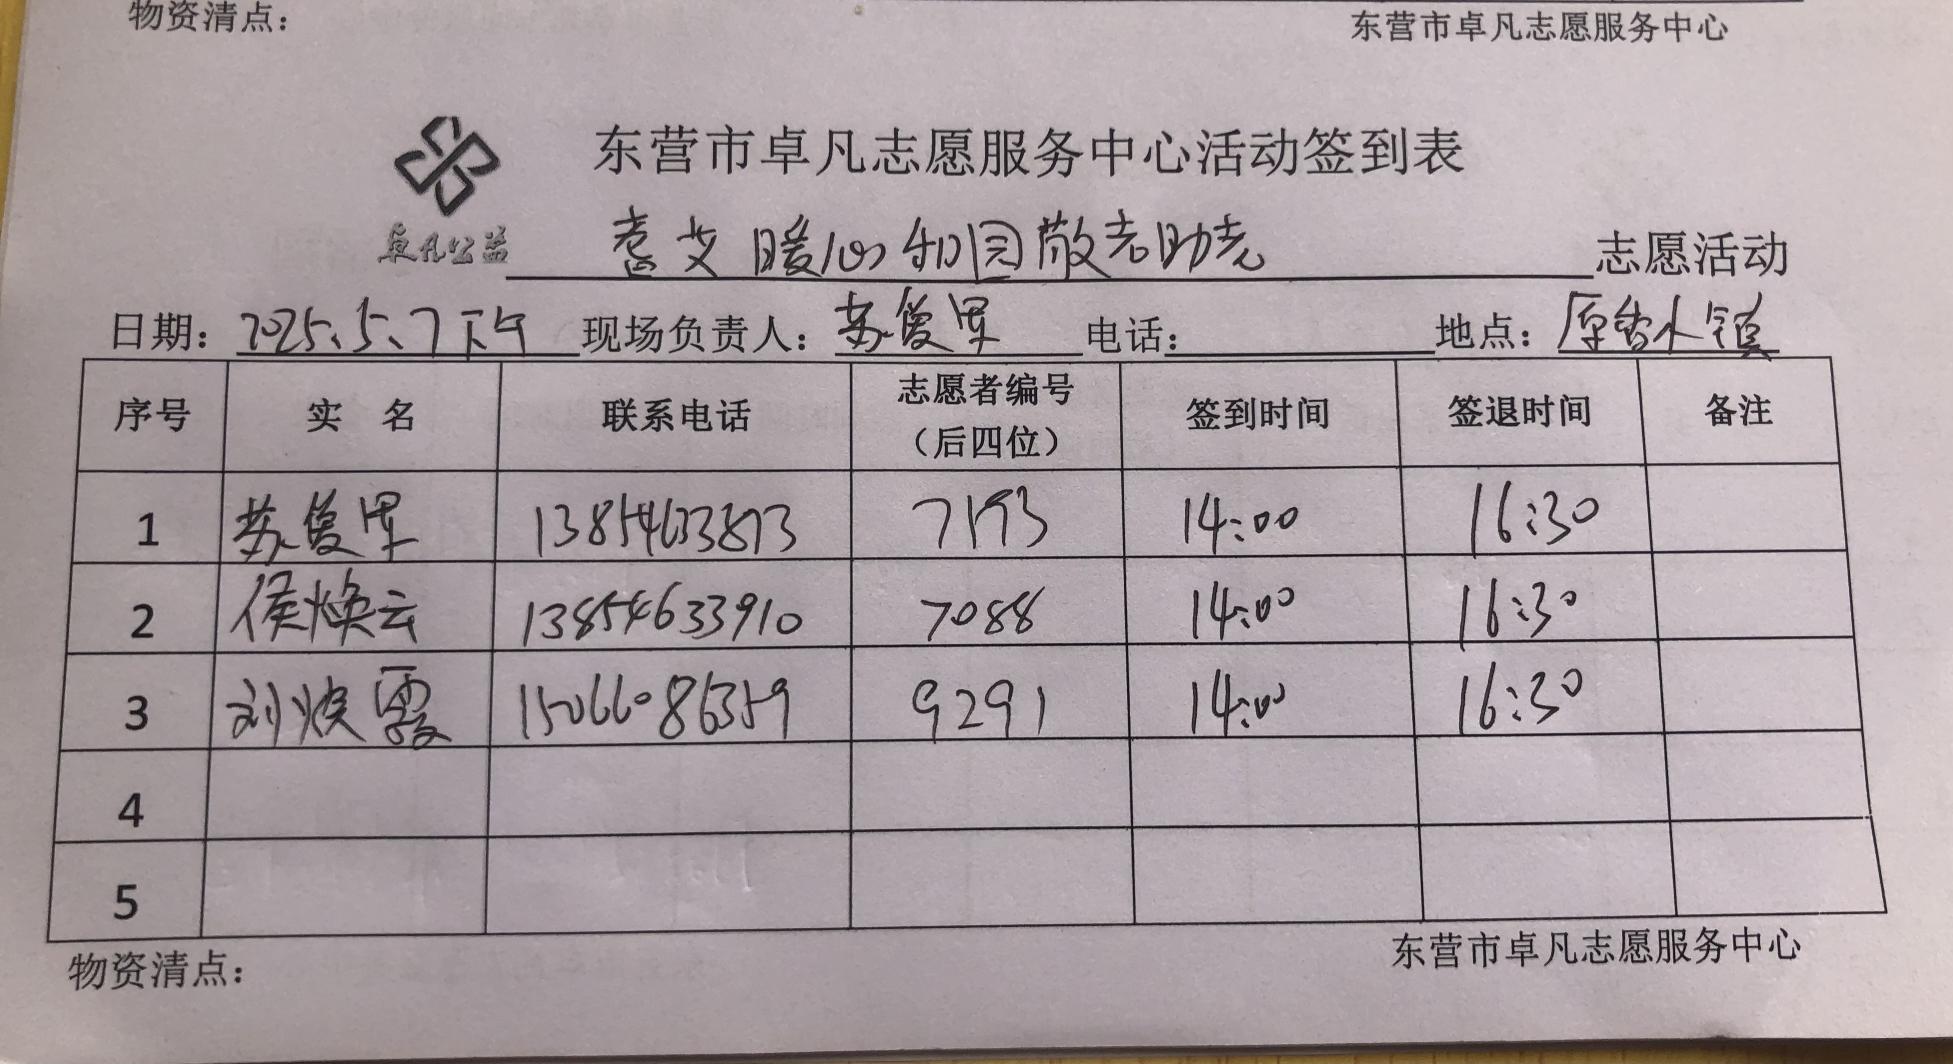 物资清点： 东营市卓凡志愿服务中心
东营市卓凡志愿服务中心活动签到表
卓凡公益
耆艾暖心和园敬老助老 志愿活动
日期：2025.5.7下午 现场负责人：苏俊军 电话： 地点：原香小镇
序号 实 名 联系电话 志愿者编号（后四位） 签到时间 签退时间 备注
1 苏俊军 13854633873 7193 14:00 16:30
2 侯焕云 13854633910 7088 14:00 16:30
3 刘焕霞 15066086359 9291 14:00 16:30
4
5
物资清点： 东营市卓凡志愿服务中心